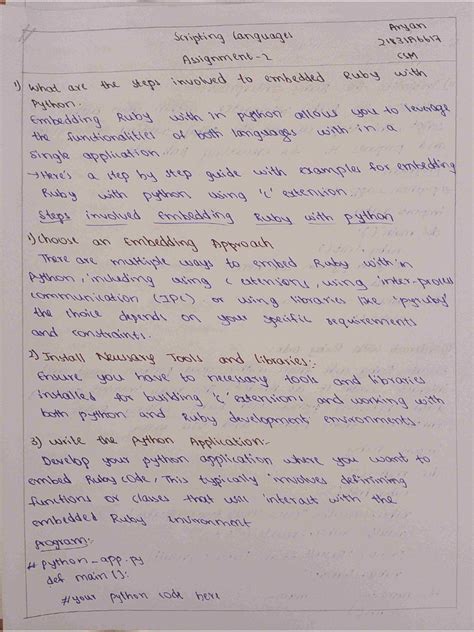 Scripting Languages
Aryan
Assignment-2
CSM
1) What are the steps involved to embedded Ruby with
Python:-
Embedding Ruby with in python allows you to leverage
the functionalities of both languages with in a
single application.
→ Here's a step by step guide with examples for embedding
Ruby with python using 'c' extension.
Steps involved Embedding Ruby with python
1) Choose an Embedding Approach
There are multiple ways to embed Ruby with in
Python, including using c extensions, using inter-process
communication (IPC) or using libraries like 'pyruby'
the choice depends on your specific requirements
and constraints.
2) Install Necessary Tools and libraries:-
Ensure you have to necessary tools and libraries
installed for building 'c' extensions and working with
both python and Ruby development environments.
3) Write the Python Application:-
Develop your python application where you want to
embed Ruby code, This typically involves definining
functions or classes that will interact with the
embedded Ruby environment
program:-
# python_app.py
def main():
#your python code here